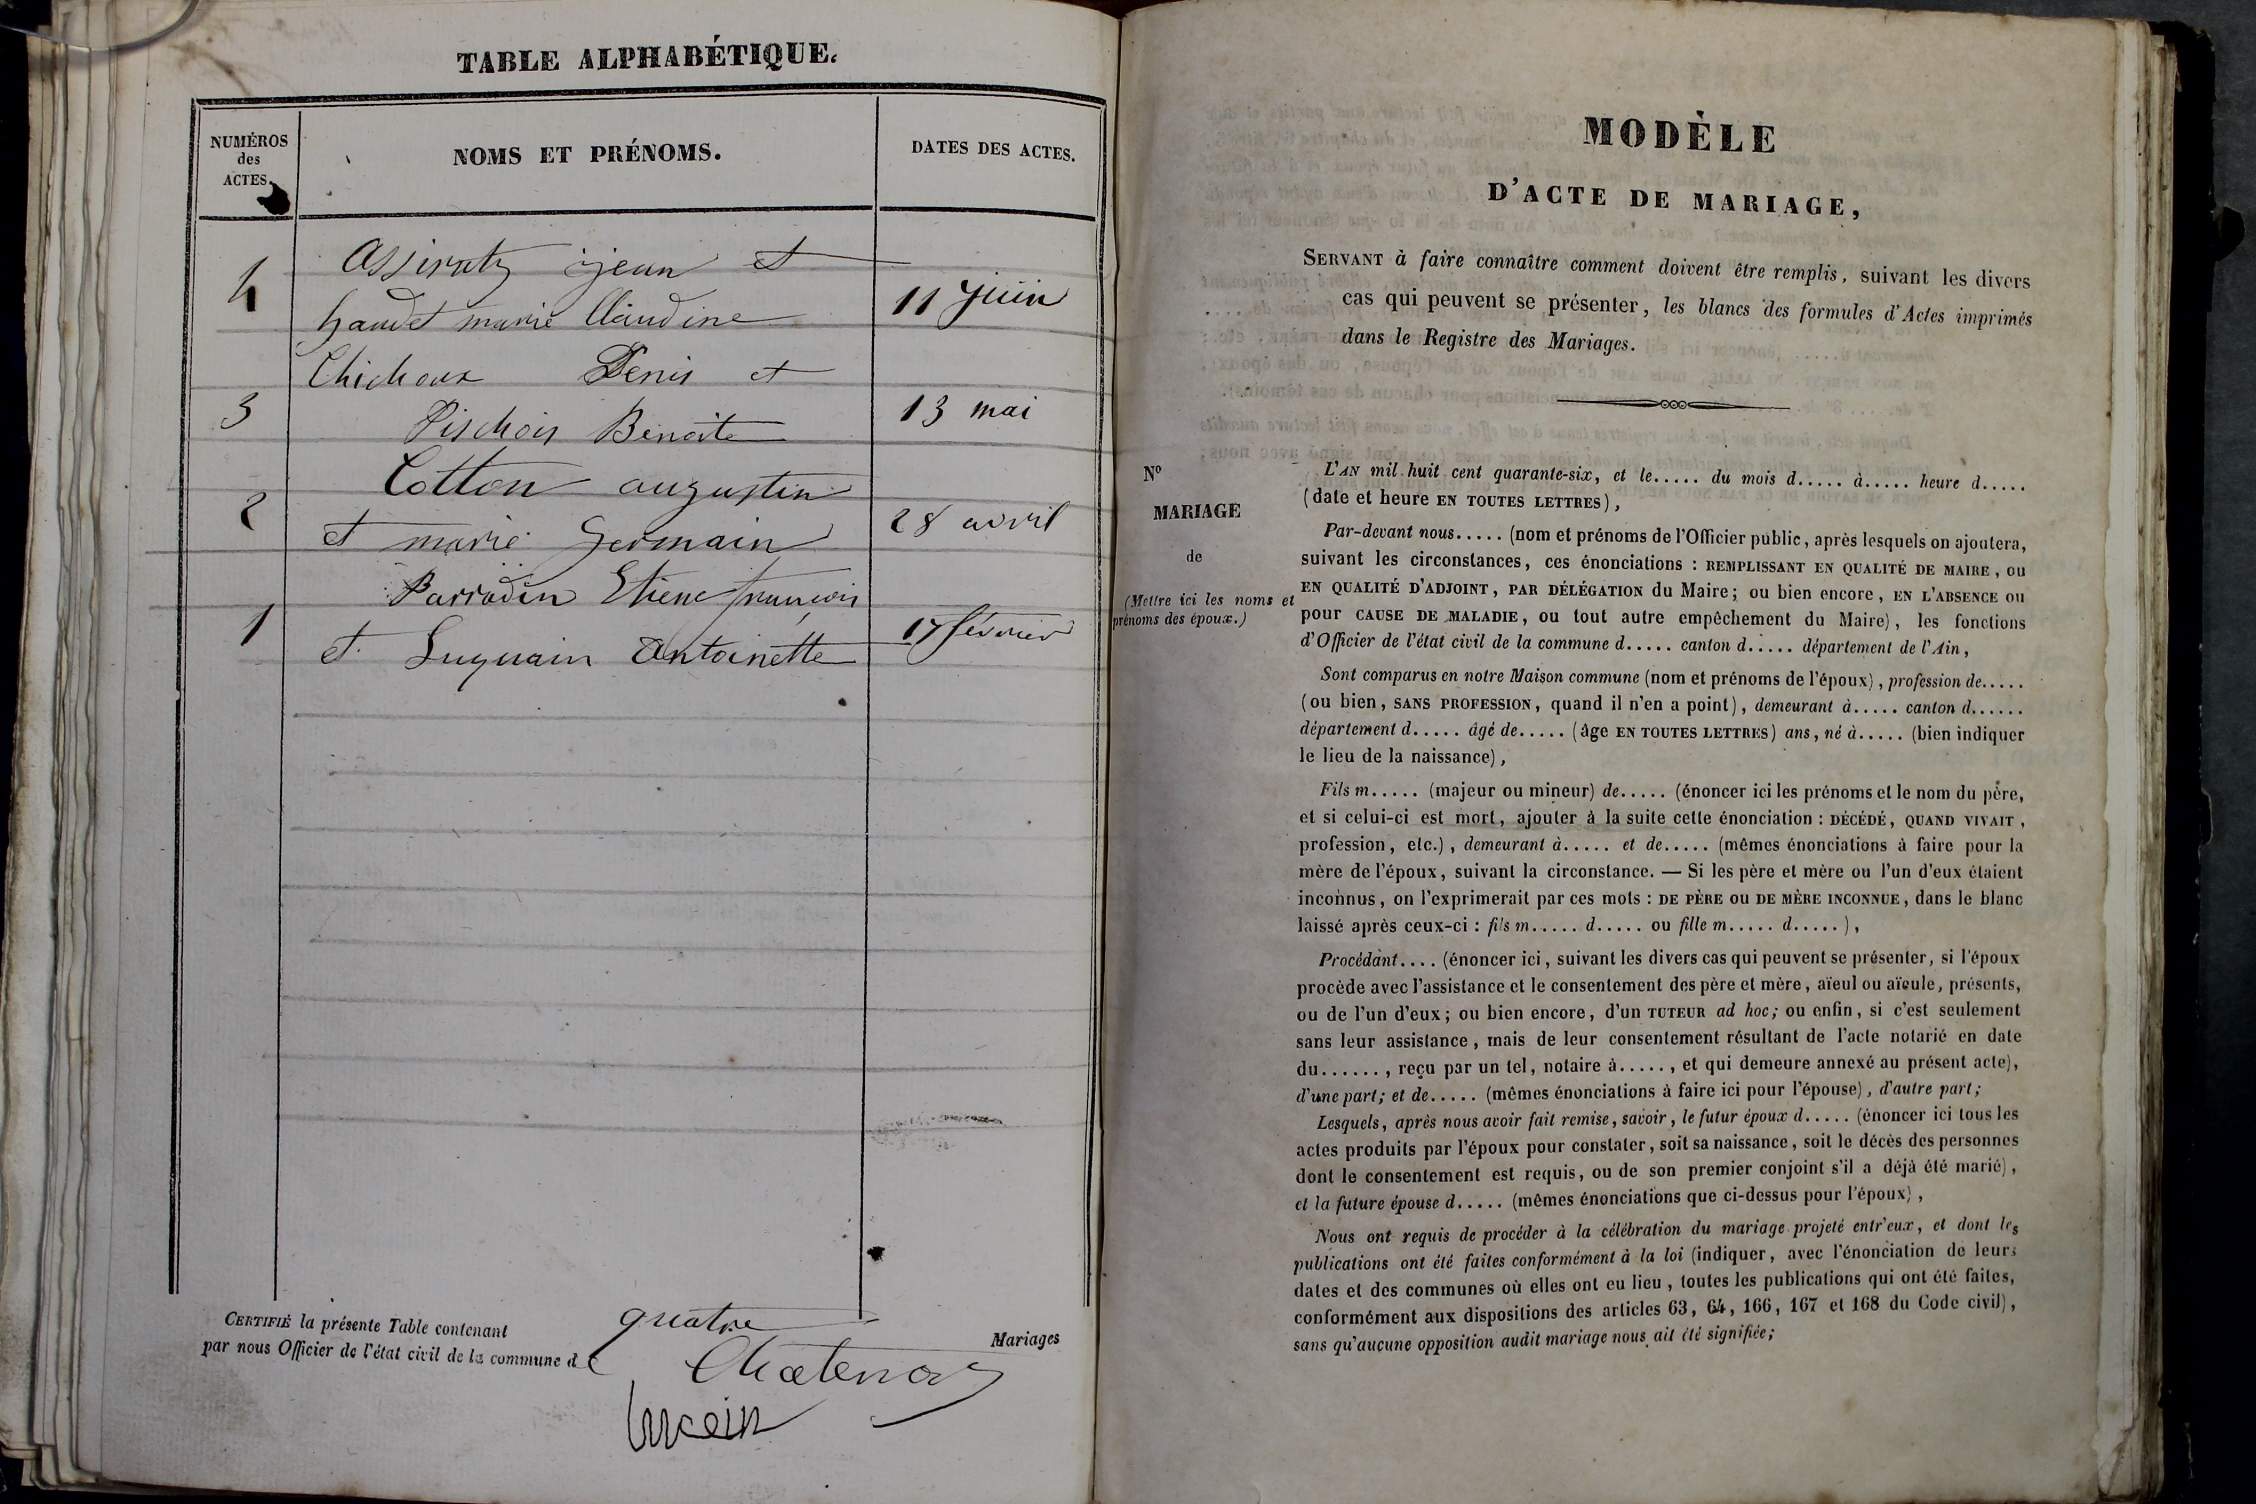 TABLE ALPHABÉTIQUE.
NUMÉROS
des
ACTES.
NOMS ET PRÉNOMS.
DATES DES ACTES.
jean et
4
marie Claudine
11 juin
Denis et
3
Benoite
13 mai
Cotton augustin
2
et marie Germain
28 avril
Barrodin Etiene françois
1
et Luquain Antoinette
17 février
CERTIFIÉ la présente Table contenant quatre Mariages
par nous Officier de l'état civil de la commune de Chatenay
MODÈLE
D'ACTE DE MARIAGE,
SERVANT à faire connaître comment doivent être remplis, suivant les divers
cas qui peuvent se présenter, les blancs des formules d'Actes imprimés
dans le Registre des Mariages.
N°
MARIAGE
de
(Mettre ici les noms et
prénoms des époux.)
L'AN mil huit cent quarante-six, et le..... du mois d..... à..... heure d.....
(date et heure EN TOUTES LETTRES),
Par-devant nous..... (nom et prénoms de l'Officier public, après lesquels on ajoutera,
suivant les circonstances, ces énonciations : REMPLISSANT EN QUALITÉ DE MAIRE, ou
EN QUALITÉ D'ADJOINT, PAR DÉLÉGATION du Maire; ou bien encore, EN L'ABSENCE ou
pour CAUSE DE MALADIE, ou tout autre empêchement du Maire), les fonctions
d'Officier de l'état civil de la commune d..... canton d..... département de l'Ain,
Sont comparus en notre Maison commune (nom et prénoms de l'époux), profession de.....
(ou bien, SANS PROFESSION, quand il n'en a point), demeurant à..... canton d......
département d..... âgé de..... (âge EN TOUTES LETTRES) ans, né à..... (bien indiquer
le lieu de la naissance),
Fils m..... (majeur ou mineur) de..... (énoncer ici les prénoms et le nom du père,
et si celui-ci est mort, ajouter à la suite cette énonciation : DÉCÉDÉ, QUAND VIVAIT,
profession, etc.), demeurant à..... et de..... (mêmes énonciations à faire pour la
mère de l'époux, suivant la circonstance. — Si les père et mère ou l'un d'eux étaient
inconnus, on l'exprimerait par ces mots : DE PÈRE ou DE MÈRE INCONNUE, dans le blanc
laissé après ceux-ci : fils m..... d..... ou fille m..... d.....),
Procédant.... (énoncer ici, suivant les divers cas qui peuvent se présenter, si l'époux
procède avec l'assistance et le consentement des père et mère, aïeul ou aïeule, présents,
ou de l'un d'eux; ou bien encore, d'un TUTEUR ad hoc; ou enfin, si c'est seulement
sans leur assistance, mais de leur consentement résultant de l'acte notarié en date
du......, reçu par un tel, notaire à....., et qui demeure annexé au présent acte),
d'une part; et de..... (mêmes énonciations à faire ici pour l'épouse), d'autre part;
Lesquels, après nous avoir fait remise, savoir, le futur époux d..... (énoncer ici tous les
actes produits par l'époux pour constater, soit sa naissance, soit le décès des personnes
dont le consentement est requis, ou de son premier conjoint s'il a déjà été marié),
et la future épouse d..... (mêmes énonciations que ci-dessus pour l'époux),
Nous ont requis de procéder à la célébration du mariage projeté entr'eux, et dont les
publications ont été faites conformément à la loi (indiquer, avec l'énonciation de leurs
dates et des communes où elles ont eu lieu, toutes les publications qui ont été faites,
conformément aux dispositions des articles 63, 64, 166, 167 et 168 du Code civil),
sans qu'aucune opposition audit mariage nous ait été signifiée;